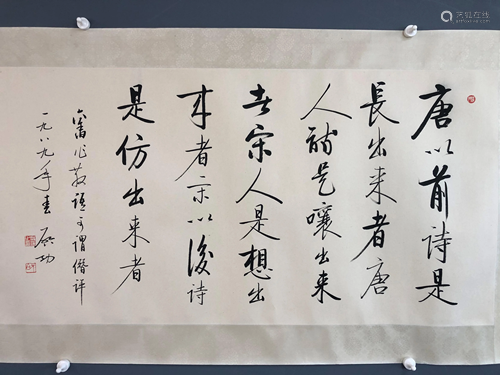 唐以前詩是
長出来者唐
人詩是嚷出来
者宋人是想出
来者宋以後詩
是仿出来者
舊作 語可謂僭評
一九八九年春 启功